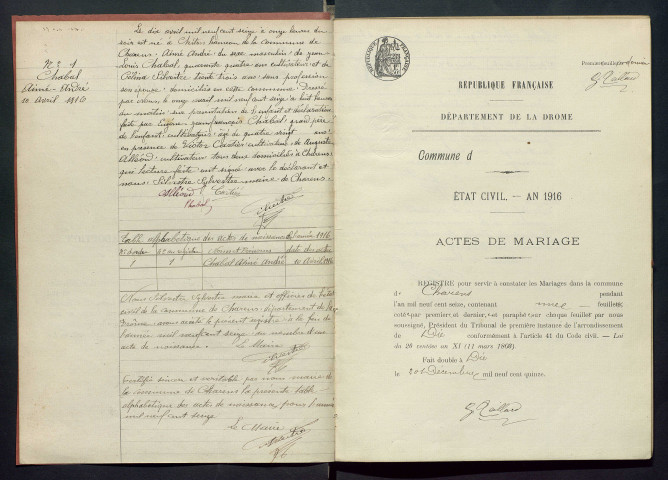 N° 1
Chabal
Aimé André
10 Avril 1916
Le dix avril mil neuf cent seize à onze heures du
soir est né à
de la commune de
Charens Aimé André du sexe masculin de Jean
Louis Chabal, quarante quatre ans cultivateur et de
trente trois ans sans profession
son épouse domiciliés en cette commune Dressé
par nous, le onze avril mil neuf cent seize à huit heures
du matin sur présentation de l'enfant et déclaration
faite par
Chabal, grand père
de l'enfant cultivateur âgé de quatre vingt ans
en présence de Victor
cultivateur et Auguste
Alléoud cultivateur tous deux domiciliés à Charens
qui lecture faite ont signé avec le déclarant et
nous Silvestre Sylvestre maire de Charens
Alléoud
Chabal
Table alphabétique des actes de naissance de l'année 1916
1 1 Chabal Aimé André 10 Avril 1916
Nous Silvestre Sylvestre maire et officier de l'état
civil de la commune de Charens département de la
Drôme avons arrêté le présent registre à la fin de
l'année mil neuf cent seize au nombre d'un
acte de naissance. Le Maire
Certifié sincère et véritable par nous maire de
la commune de Charens la présente table
alphabétique des actes de naissance pour l'année
mil neuf cent seize
Le Maire
RÉPUBLIQUE FRANÇAISE
DÉPARTEMENT DE LA DROME
Commune d
ÉTAT CIVIL. — AN 1916
ACTES DE MARIAGE
REGISTRE pour servir à constater les Mariages dans la commune
de Charens pendant
l'an mil neuf cent seize, contenant feuillets,
coté par premier et dernier, et paraphé sur chaque feuillet par nous
soussigné, Président du Tribunal de première instance de l'arrondissement
de Die conformément à l'article 41 du Code civil. — Loi
du 20 ventôse an XI (11 mars 1803).
Fait double à Die
le 20 Décembre mil neuf cent quinze.